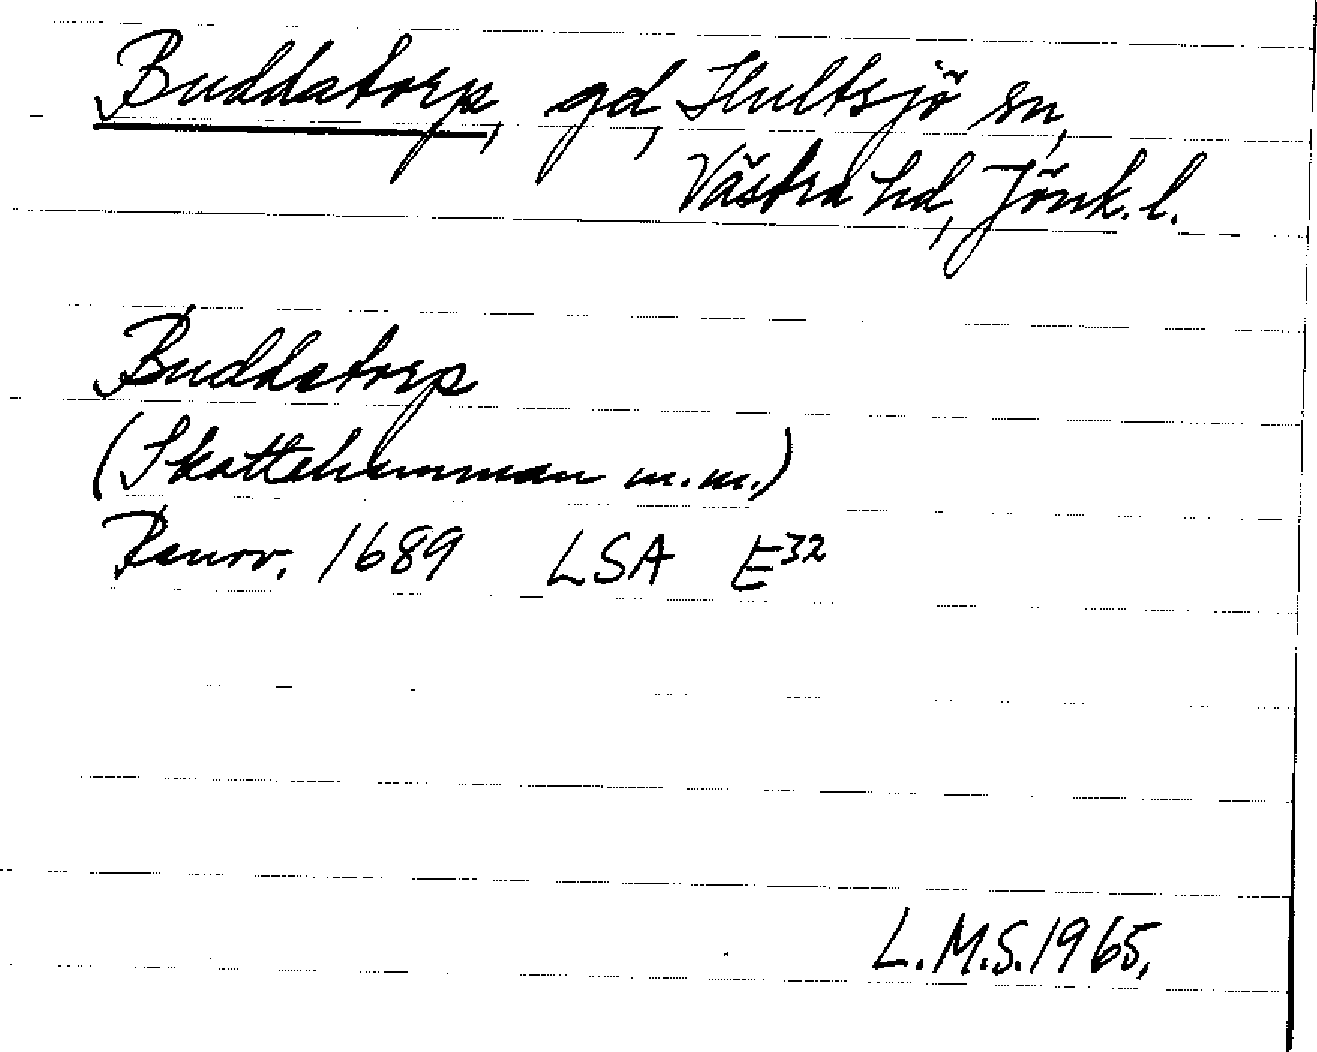 Buddatorp, gd, Hultsjö sn,
Västra hd, Jönk. l.
Buddatorp
(Skattehemman m.m.)
Renov. 1689 LSA E32
L.M.S. 1965.